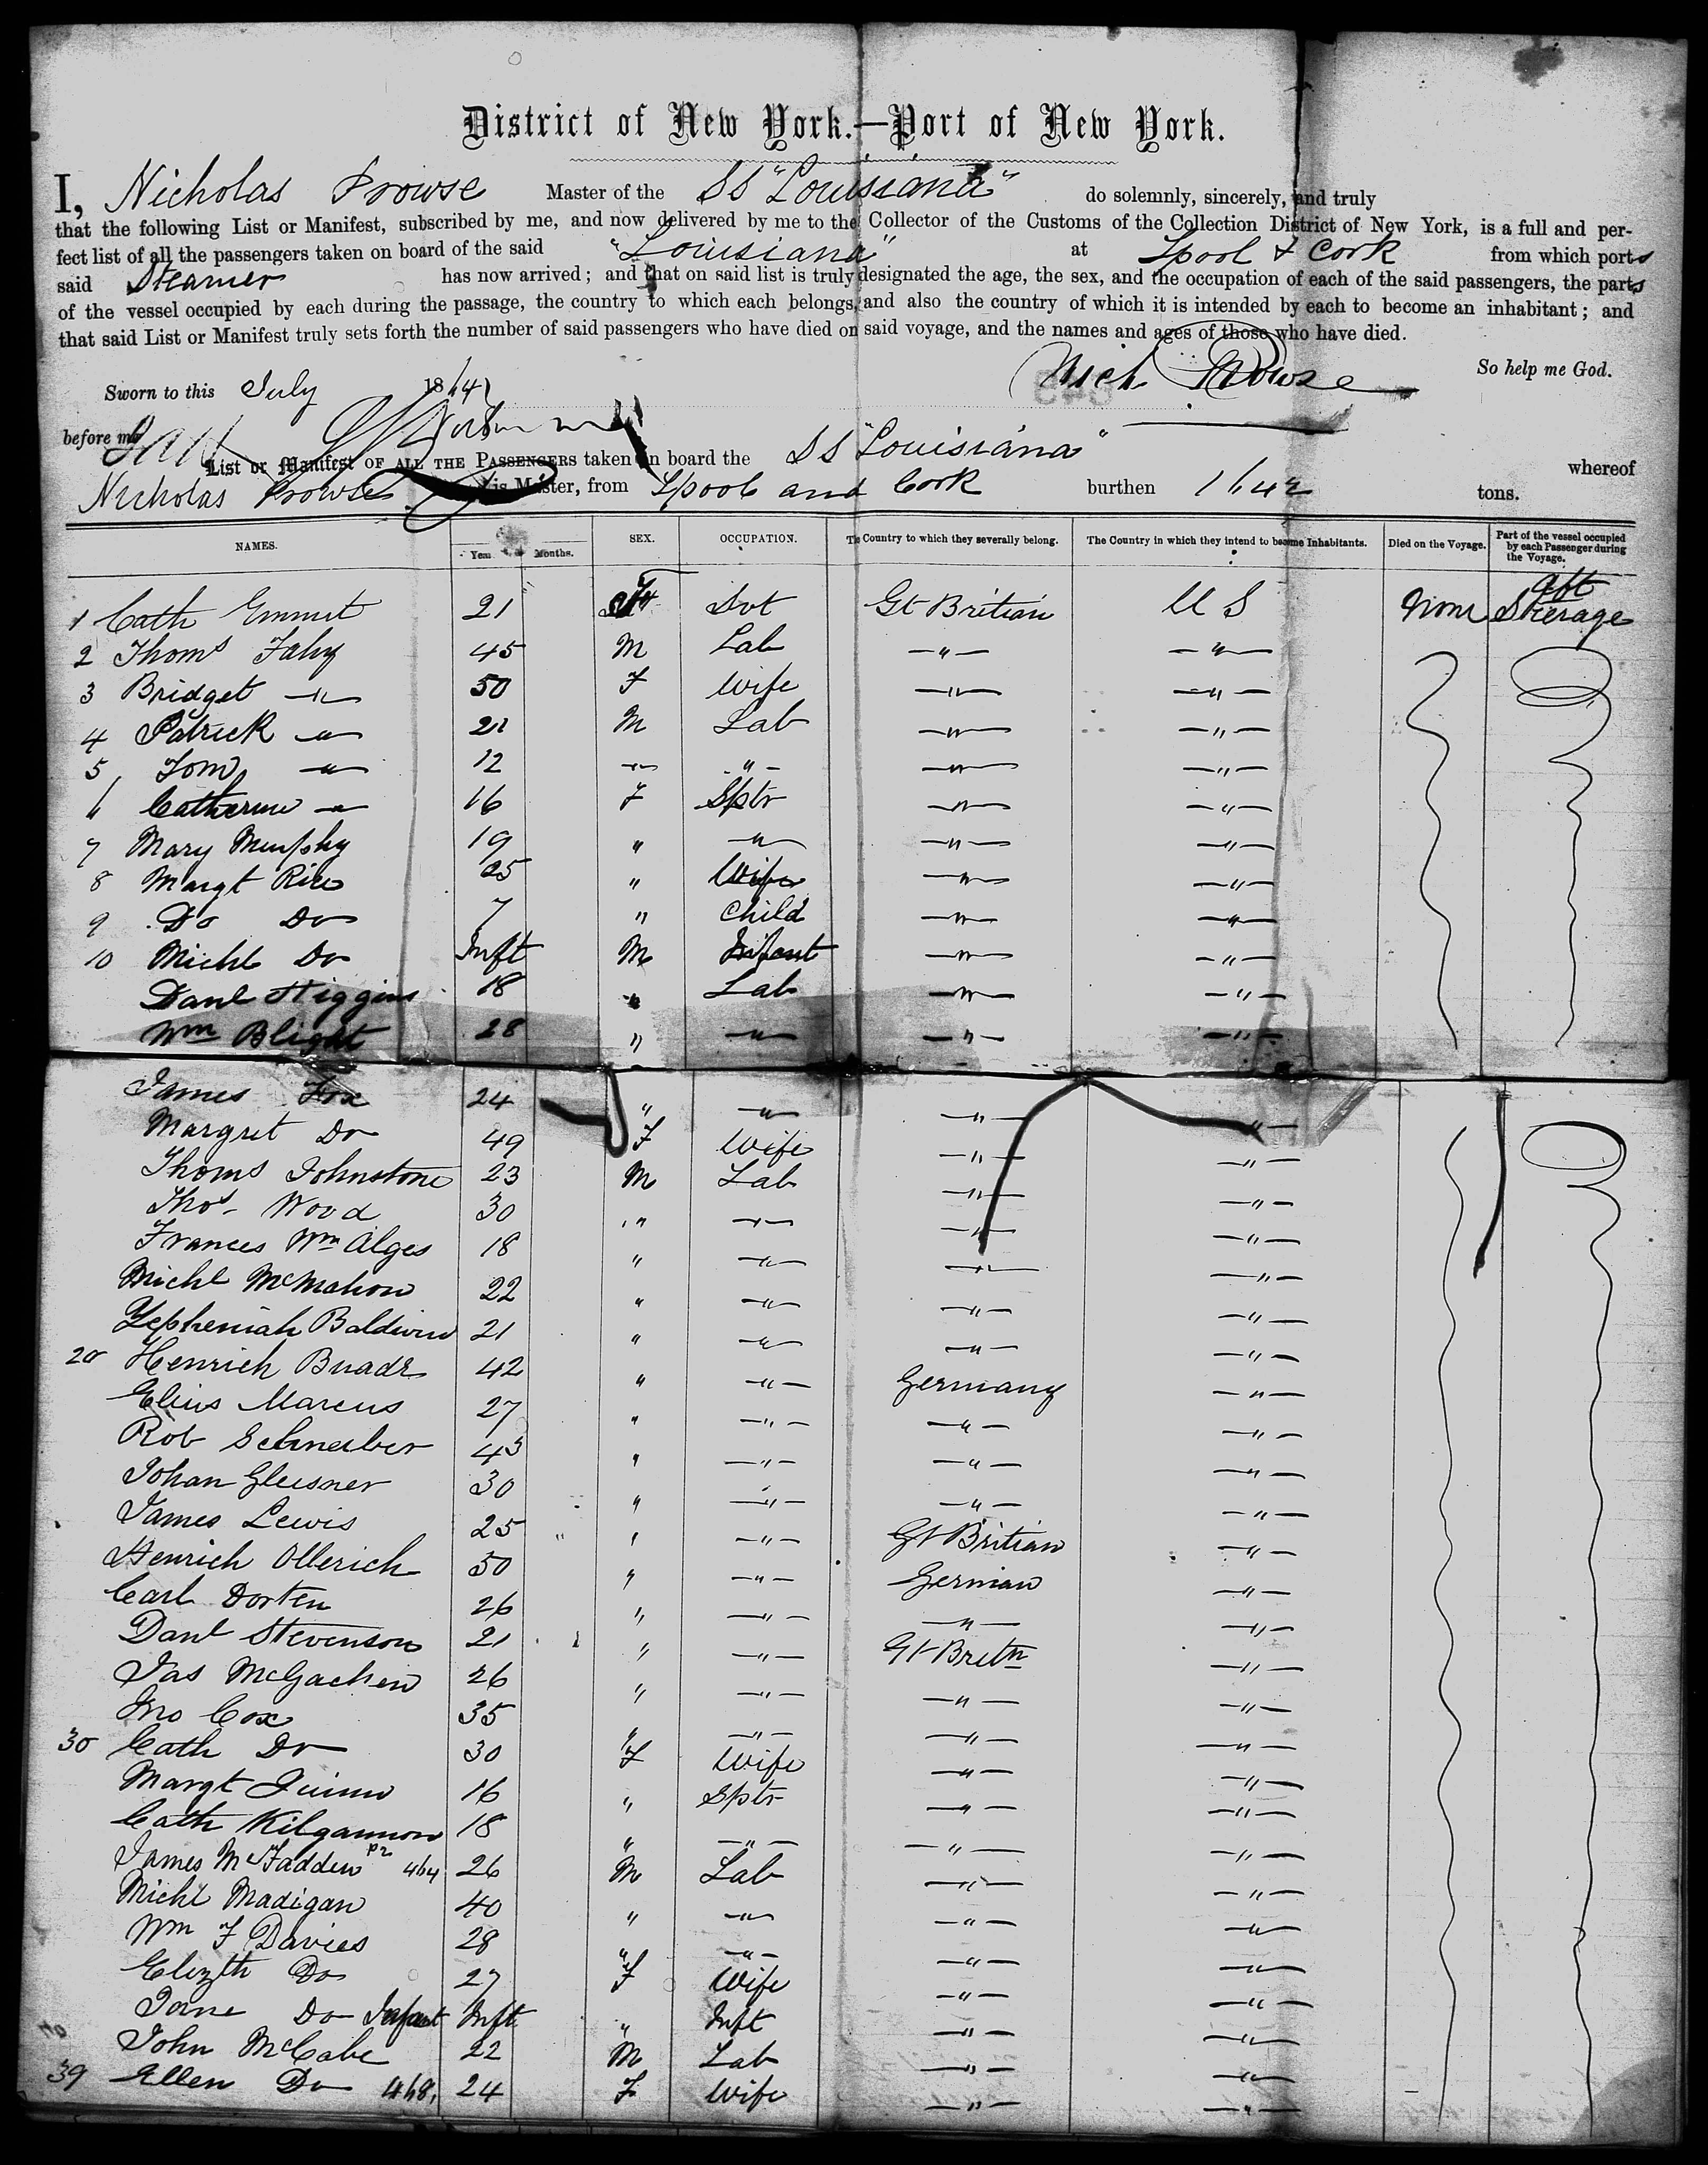 District of New York.—Port of New York.
I, Nicholas Prowse Master of the SS "Louisiana" do solemnly, sincerely, and truly
that the following List or Manifest, subscribed by me, and now delivered by me to the Collector of the Customs of the Collection District of New York, is a full and per-
fect list of all the passengers taken on board of the said "Louisiana" at Lpool & Cork from which ports
said Steamer has now arrived; and that on said list is truly designated the age, the sex, and the occupation of each of the said passengers, the parts
of the vessel occupied by each during the passage, the country to which each belongs, and also the country of which it is intended by each to become an inhabitant; and
that said List or Manifest truly sets forth the number of said passengers who have died on said voyage, and the names and ages of those who have died.
So help me God.
Nich Prowse
Sworn to this July 1864
before me
List or Manifest OF ALL THE PASSENGERS taken on board the SS "Louisiana" whereof
Nicholas Prowse is Master, from Lpool and Cork burthen tons.
NAMES. Years Months. SEX. OCCUPATION. The Country to which they severally belong. The Country in which they intend to become Inhabitants. Died on the Voyage. Part of the vessel occupied by each Passenger during the Voyage.
1 Cath Emmet 21 F Svt Gt Britian U S None Aft Steerage
2 Thoms Fahy 45 M Lab " "
3 Bridget " 50 F Wife " "
4 Patrick " 21 M Lab " "
5 Tom " 12 " " " "
6 Catherine " 16 F Sptr " "
7 Mary Murphy 19 " " " "
8 Margt Rice 25 " Wife " "
9 Do Do 7 " Child " "
10 Michl Do Inft M Infant " "
Danl Higgins 18 " Lab " "
Wm Blight 28 " " " "
James Fox 24 " " " "
Margret Do 49 F Wife " "
Thoms Johnstone 23 M Lab " "
Thos Wood 30 " " " "
Frances Wm Alges 18 " " " "
Michl McMahon 22 " " " "
Zepheniah Baldwin 21 " " " "
20 Henrich 42 " " Germany "
Elius Marcus 27 " " " "
Rob Schneiber 43 " " " "
Johan Gleisner 30 " " " "
James Lewis 25 " " Gt Britian "
Henrich Ollerich 50 " " German "
Carl Dorten 26 " " " "
Danl Stevenson 21 " " Gt Britn "
Jas McGachen 26 " " " "
Jno Cox 35 " " " "
30 Cath Do 30 F Wife " "
Margt Quinn 16 " Sptr " "
Cath Kilgannon 18 " " " "
James McFadden 464 26 M Lab " "
Michl Madigan 40 " " " "
Wm F Davies 28 " " " "
Elizth Do 27 F Wife " "
Jane Do Infant Inft " Inft " "
John McCabe 22 M Lab " "
39 Ellen Do 468, 24 F Wife " "